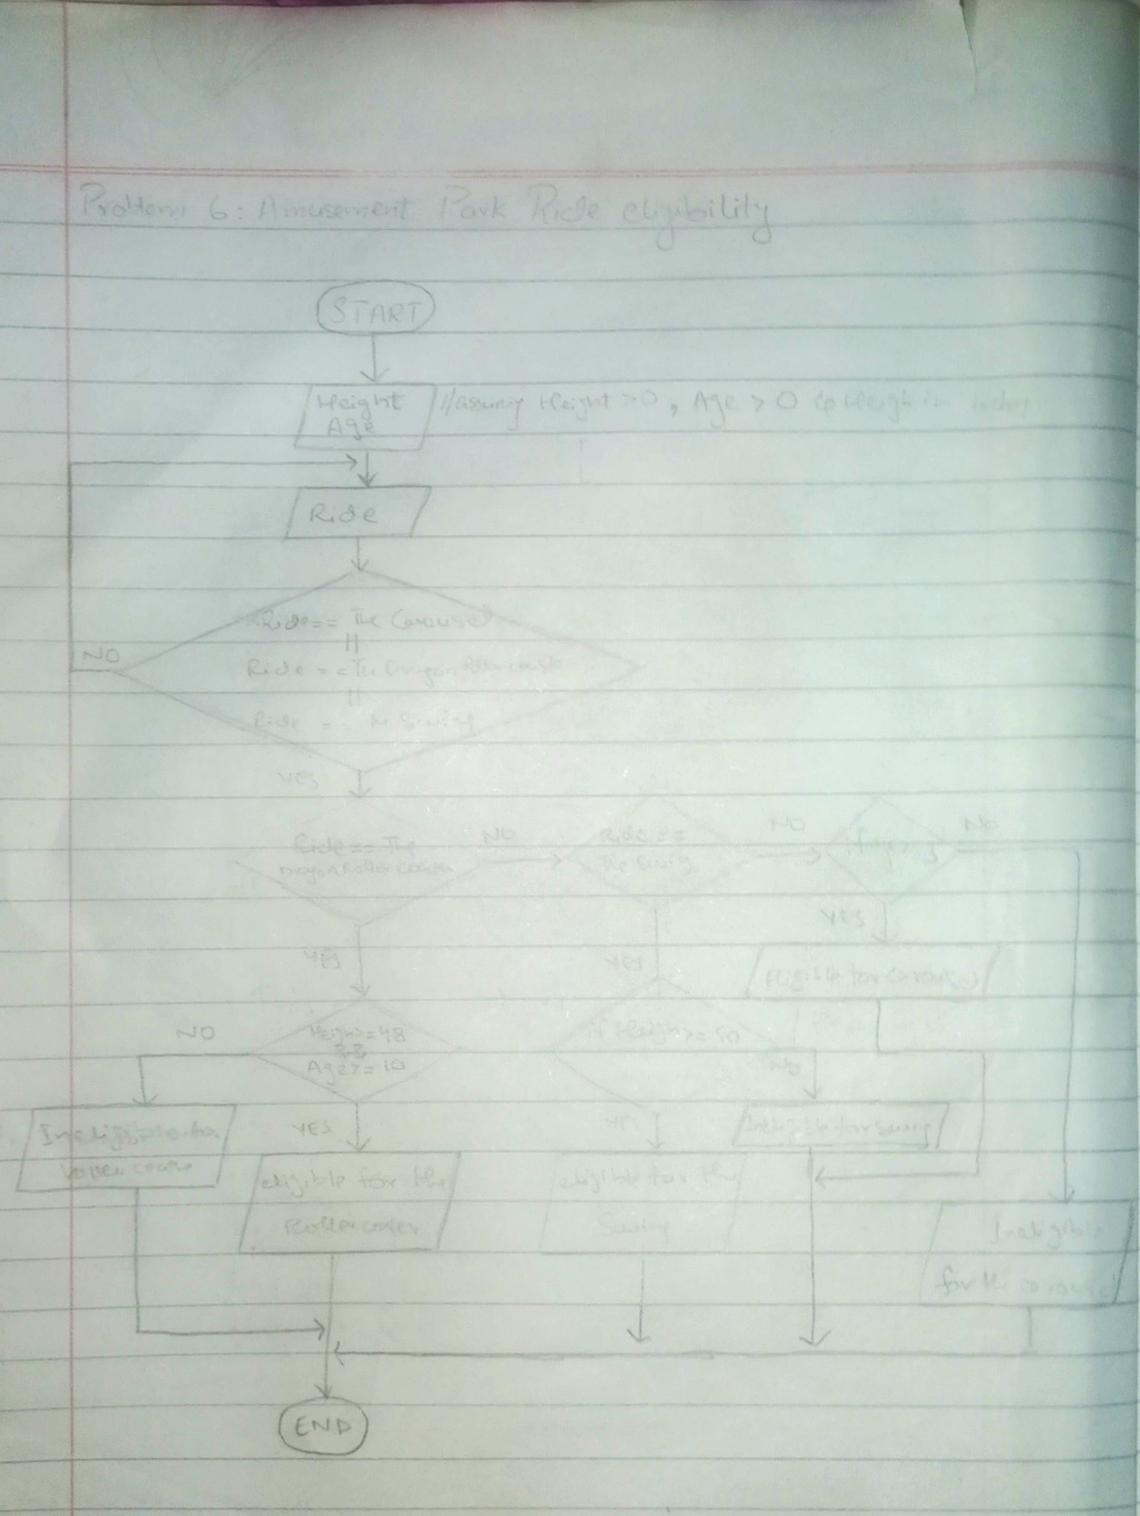 Problem 6: Amusement Park Ride eligibility
START
Height
Age
//assuming Height >0, Age > 0
Ride
Ride== The Carousel
||
Ride ==The Dragon Rollercoaster
||
Ride == The Swing
NO
YES
Ride== The
Dragon Roller coaster
NO
Ride ==
The Swing
NO
NO
YES
YES
YES
Eligible for carousel
NO
Height>=48
&&
Age>=10
if Height>=50
NO
Ineligible for
roller coaster
YES
YES
Ineligible for swing
eligible for the
Rollercoaster
eligible for the
Swing
Ineligible
for the carousel
END